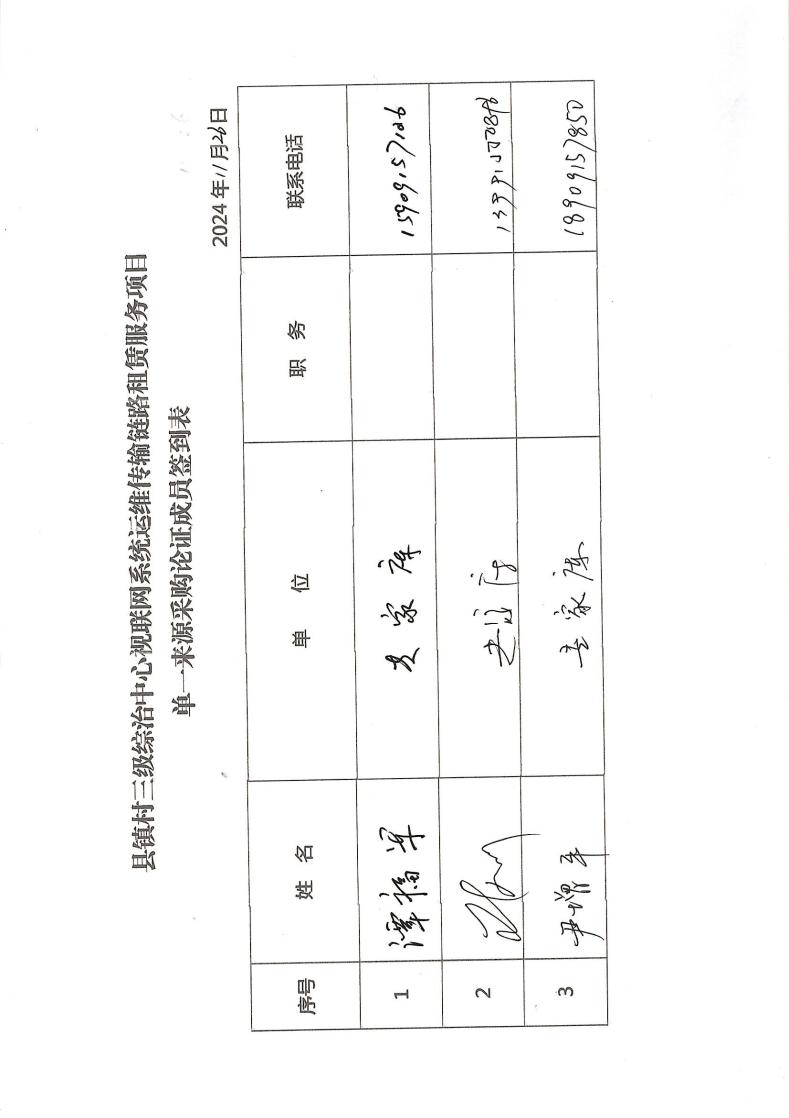 县镇村三级综治中心视联网系统运维传输链路租赁服务项目
单一来源采购论证成员签到表
2024年11月26日
序号 姓名 单位 职务 联系电话
1 谭福军 专家库 15909157126
2 专家库
3 尹增军 专家库 18909157850